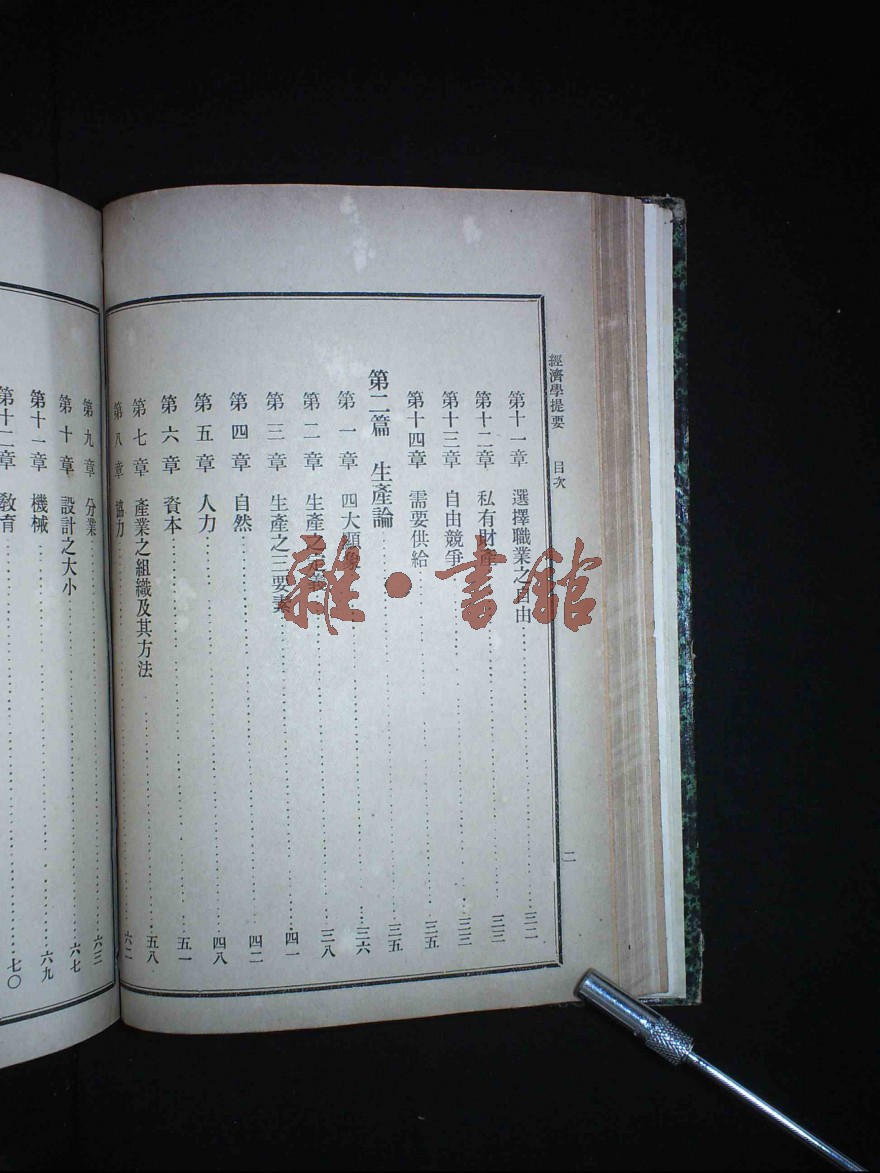 經濟學提要　目次
二
第十一章　選擇職業之自由……三二
第十二章　私有財產……三三
第十三章　自由競爭……三三
第十四章　需要供給……三五
第二篇　生產論……三五
第一章　四大……三六
第二章　生產之定義……三八
第三章　生產之三要素……四一
第四章　自然……四二
第五章　人力……四八
第六章　資本……五一
第七章　產業之組織及其方法……五八
第八章　協力……六二
第九章　分業……六三
第十章　設計之大小……六七
第十一章　機械……六九
第十二章　教育……七〇
雜·書館